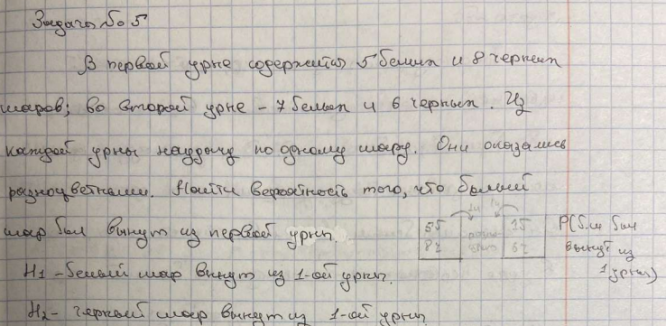 Задача №5
В первой урне содержится 5 белых и 8 черных
шаров; во второй урне - 7 белых и 6 черных. Из
каждой урны наудачу по одному шару. Они оказались
разноцветными. Найти вероятность того, что белый
шар был вынут из первой урны.
5б
8ч
1б
6ч
P(б.ш был
вынут из
1 урны)
H1 - белый шар вынут из 1-ой урны.
H2 - черный шар вынут из 1-ой урны